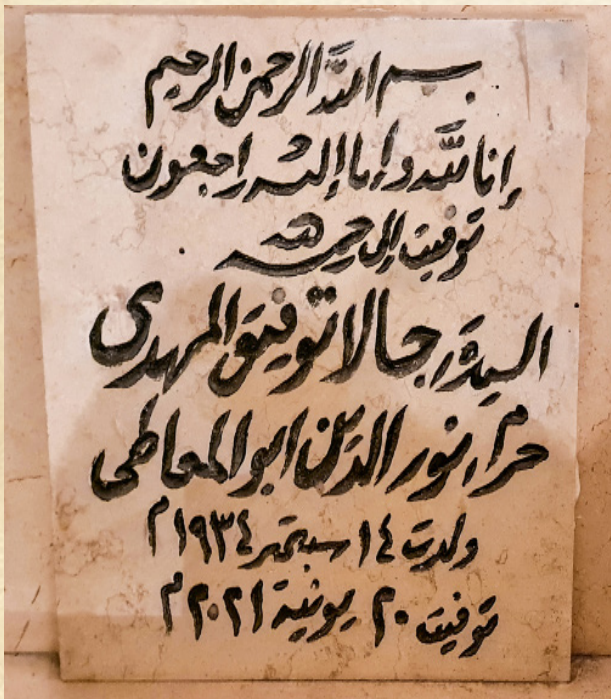 بسم الله الرحمن الرحيم
إنا لله وإنا إليه راجعون
توفيت إلى رحمة الله
السيدة / جالا توفيق المهدى
حرم / نور الدين ابو المعاطى
ولدت ١٤ سبتمبر ١٩٣٤ م
توفيت ٢٠ يونية ٢٠٢١ م